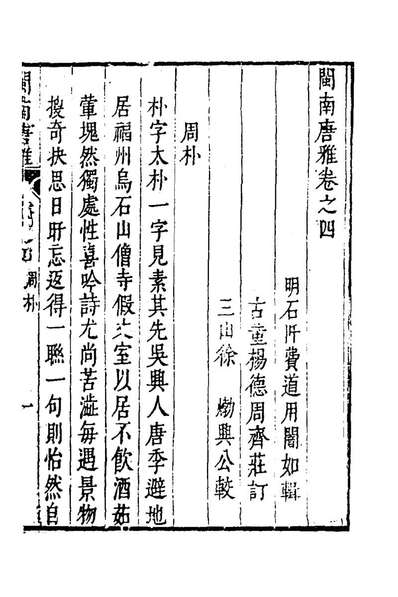 閩南唐雅卷之四
明石阡費道用闇如輯
古董楊德周齊莊訂
三山徐𤊹興公較
周朴
朴字太朴一字見素其先吳興人唐季避地
居福州烏石山僧寺假丈室以居不飲酒茹
葷塊然獨處性喜吟詩尤尚苦澁每遇景物
搜奇抉思日旰忘返得一聯一句則怡然自
閩南唐雅 卷之四 周朴 一